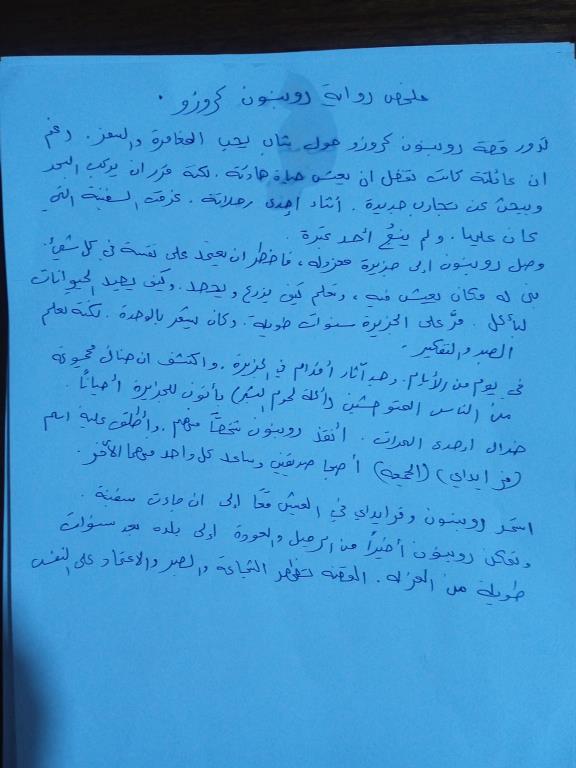 ملخص رواية روبنسون كروزو .
تدور قصة روبنسون كروزو حول شاب يحب المغامرة والسفر. رغم
ان عائلته كانت تفضل ان يعيش حياة هادئة. لكنه قرر ان يركب البحر
ويبحث عن تجارب جديدة . أثناء احدى رحلاته . غرقت السفينة التي
كان عليها . ولم ينج احد غيره .
وصل روبنسون الى جزيرة معزوله ، فاضطر ان يعتمد على نفسه في كل شيء.
بنى له مكان يعيش فيه ، وتعلم كيف يزرع ويحصد . وكيف يصيد الحيوانات
ليأكل . مرَّ على الجزيرة سنوات طويلة . وكان يشعر بالوحدة . لكنه تعلم
الصبر والتفكير .
في يوم من الأيام . وجد آثار أقدام في الجزيرة . واكتشف ان هناك مجموعة
من الناس المتوحشين (أكلة لحوم البشر) يأتون للجزيرة أحياناً .
خلال احدى المرات . أنقذ روبنسون شخصاً منهم . وأطلق عليه اسم
(فرايداي) (الجمعة) أصبحا صديقين وساعد كل واحد منهما الآخر .
استمر روبنسون وفرايداي في العيش معًا إلى ان جاءت سفينة .
وتمكن روبنسون أخيرًا من الرحيل والعودة إلى بلده بعد سنوات
طويلة من العزله . القصة تظهر الشجاعة والصبر والاعتماد على النفس